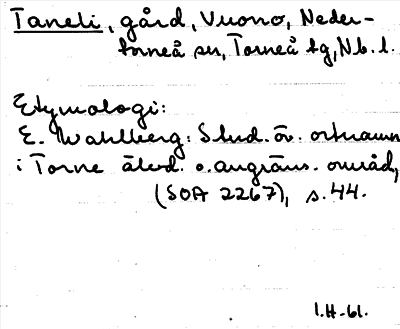 Taneli, gård, Vuono, Neder-
torneå sn, Torneå tg, Nb. l.
Etymologi:
E. Wahlberg: Stud. öv. ortnamn
i Torne älvd. o. angräns. område,
(SOA 2267), s. 44.
I.H-61.